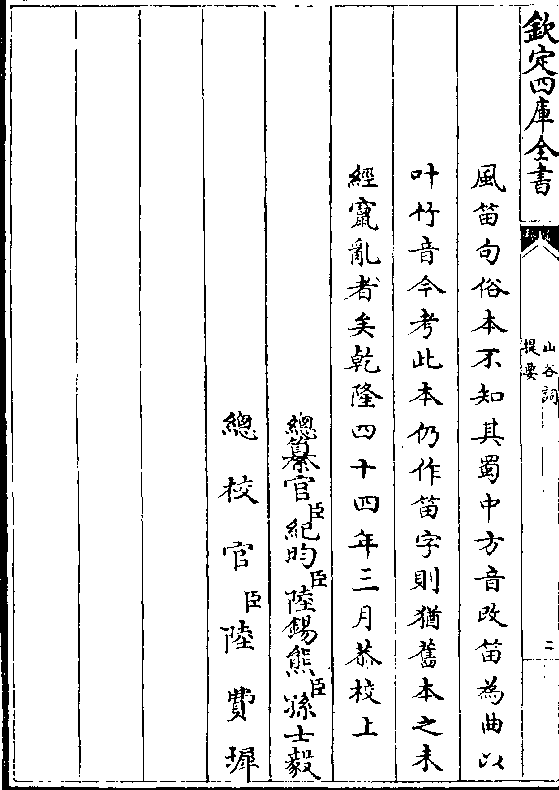 欽定四庫全書
山谷詞
提要
二
風笛句俗本不知其蜀中方音改笛為曲以
叶竹音今考此本仍作笛字則猶舊本之未
經竄亂者矣乾隆四十四年三月恭校上
總纂官臣紀昀臣陸錫熊臣孫士毅
總校官臣陸費墀